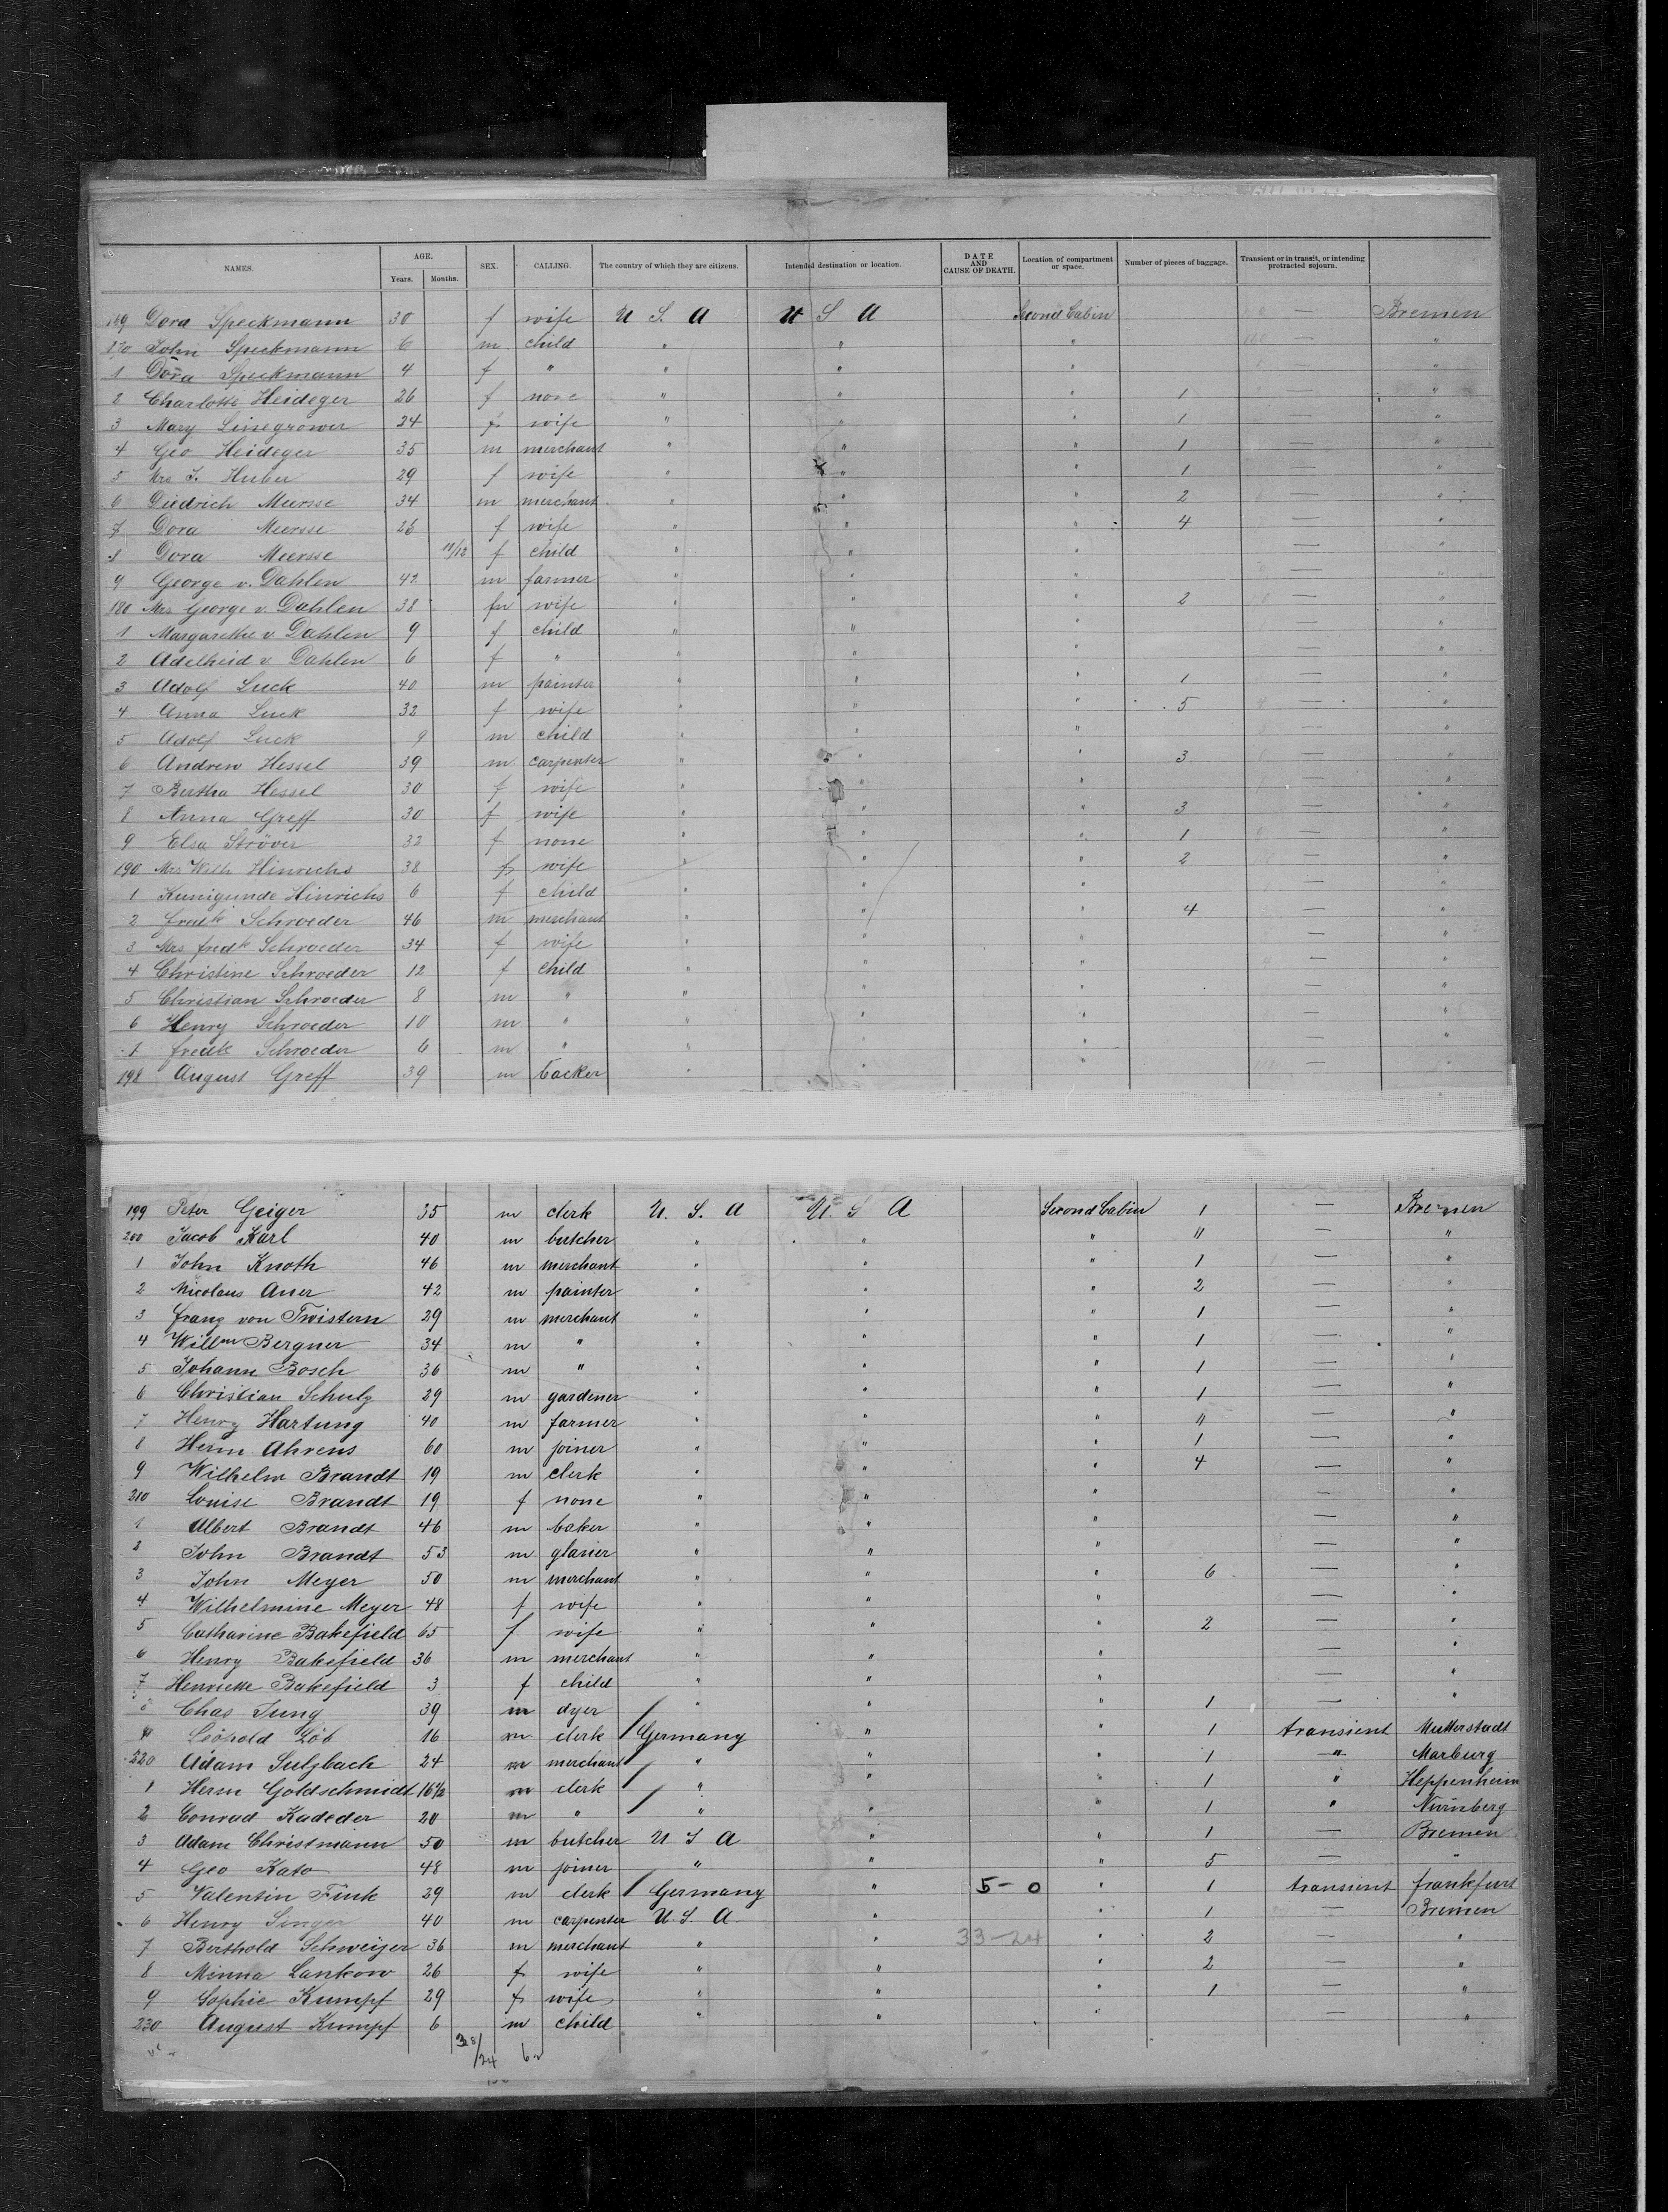 NAMES. AGE. SEX. CALLING. The country of which they are citizens. Intended destination or location. DATE AND CAUSE OF DEATH. Location of compartment or space. Number of pieces of baggage. Transient or in transit, or intending protracted sojourn.
Years. Months.
169 Dora Speckmann 30 f wife U S. A U S A Second Cabin — Bremen
170 John Speckmann 6 m child " " " — "
1 Dora Speckmann 4 f " " " " "
2 Charlotte Heideger 26 f none " " " 1 — "
3 Mary Linegrower 24 f wife " " " 1 — "
4 Geo Heideger 35 m merchant " " " 1 — "
5 Mrs J. Huber 29 f wife " " " 1 "
6 Diedrich Meersse 34 m merchant " " " 2 — "
7 Dora Meersse 26 f wife " " " 4 — "
8 Dora Meersse 11/12 f child " " " — "
9 George v. Dahlen 42 m farmer " " " — "
180 Mrs George v. Dahlen 38 f wife " " " 2 — "
1 Margarethe v. Dahlen 9 f child " " " — "
2 Adelheid v Dahlen 6 f " " " " — "
3 Adolf Luck 40 m painter " " " 1 — "
4 Anna Luck 32 f wife " " " 5 — "
5 Adolf Luck 9 m child " " " — "
6 Andrew Hessel 39 m carpenter " " " 3 — "
7 Bertha Hessel 30 f wife " " " — "
8 Anna Greff 30 f wife " " " 3 — "
9 Elsa Ströver 32 f none " " " 1 — "
190 Mrs Wilh Hinrichs 38 f wife " " " 2 — "
1 Kunigunde Hinrichs 6 f child " " " — "
2 Fredk Schroeder 46 m merchant " " " 4 — "
3 Mrs fredk Schroeder 34 f wife " " " — "
4 Christine Schroeder 12 f child " " " — "
5 Christian Schroeder 8 m " " " " — "
6 Henry Schroeder 10 m " " " " — "
7 fredk Schroeder 6 m " " " " — "
198 August Greff 39 m backer " " " — "
199 Peter Geiger 35 m clerk U. S. A U. S A Second Cabin 1 — Bremen
200 Jacob Karl 40 m butcher " " " " — "
1 John Knoth 46 m merchant " " " 1 — "
2 Nicolaus Auer 42 m painter " " " 2 — "
3 Franz von Twistern 29 m merchant " " " 1 — "
4 Willm Bergner 34 m " " " " 1 — "
5 Johann Bosch 36 m " " " " 1 — "
6 Christian Schulz 29 m gardener " " " 1 — "
7 Henry Hartung 40 m farmer " " " " — "
8 Herm Ahrens 60 m joiner " " " 1 — "
9 Wilhelm Brandt 19 m clerk " " " 4 — "
210 Louise Brandt 19 f none " " " — "
1 Albert Brandt 46 m baker " " " — "
2 John Brandt 53 m glasier " " " — "
3 John Meyer 50 m merchant " " " 6 — "
4 Wilhelmine Meyer 48 f wife " " " — "
5 Catharine Bakefield 65 f wife " " " 2 — "
6 Henry Bakefield 36 m merchant " " " — "
7 Henriette Bakefield 3 f child " " " — "
8 Chas Jung 39 m dyer " " " 1 — "
9 Leopold Löb 16 m clerk Germany " " 1 transient Mutterstadt
220 Adam Sulzbach 24 m merchant " " " 1 " Marburg
1 Herm Goldschmidt 16½ m clerk " " " 1 " Heppenheim
2 Conrad Kadeder 20 m " " " " 1 " Nürnberg
3 Adam Christmann 50 m butcher U S A " " 1 — Bremen
4 Geo Kato 48 m joiner " " " 5 — "
5 Valentin Fink 29 m clerk Germany " 5-0 " 1 transient frankfurt
6 Henry Singer 40 m carpenter U. S. A. " " 1 — Bremen
7 Berthold Schweizer 36 m merchant " " 33-24 " 2 — "
8 Minna Lankow 26 f wife " " " 2 — "
9 Sophie Kumpf 29 f wife " " " 1 — "
230 August Kumpf 6 m child " " " — "
38/24